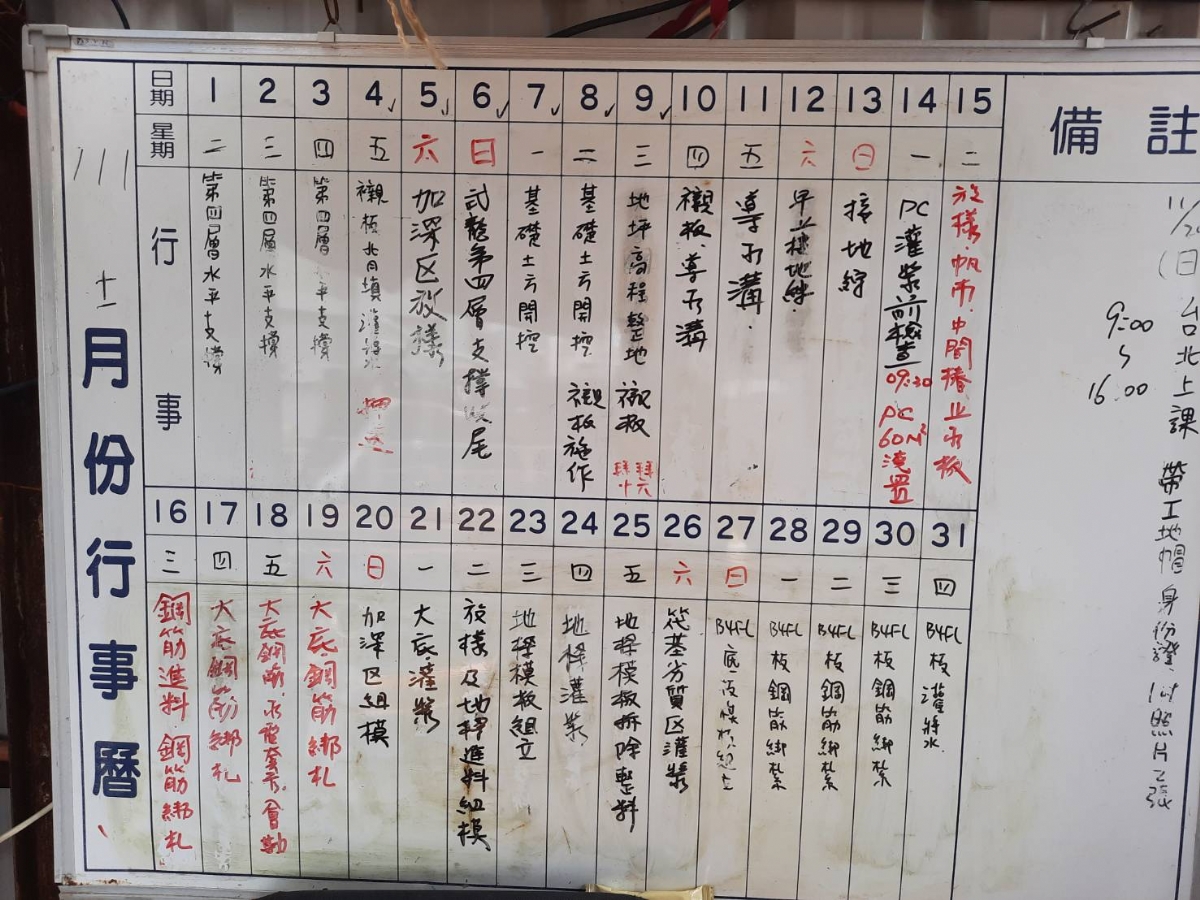 111
十一
月份行事曆
日期 1 2 3 4 5 6 7 8 9 10 11 12 13 14 15 備註
星期 二 三 四 五 六 日 一 二 三 四 五 六 日 一 二
行事
第四層水平支撐
第四層水平支撐
第四層水平支撐
襯板背填灌漿
加深区放樣
第四層支撐收尾
基礎土方開挖
基礎土方開挖 襯板施作
地坪高程整地 襯板
襯板、導水溝
導水溝
接地
PC灌漿前檢查 09:30 PC 60M³澆置
放樣、帆布、中間樁止水板
16 17 18 19 20 21 22 23 24 25 26 27 28 29 30 31
三 四 五 六 日 一 二 三 四 五 六 日 一 二 三 四
鋼筋進料 鋼筋綁札
大底鋼筋綁札
大底鋼筋、水電套管、會勘
大底鋼筋綁札
加深区組模
大底灌漿
放樣及地樑進料組模
地樑模板組立
地樑灌漿
地樑模板拆除整料
筏基劣質区灌漿
B4FL
B4FL 板鋼筋綁紮
B4FL 板鋼筋綁紮
B4FL 板鋼筋綁紮
B4FL 板灌漿
(日) 台北上課 帶工地帽 身份證、1吋照片2張
9:00
16:00